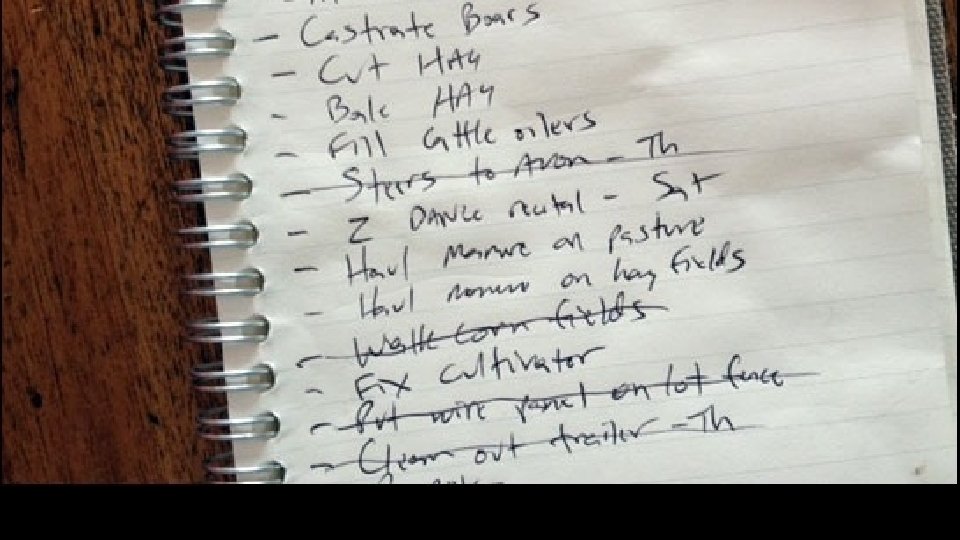 - Castrate Boars
- Cut HAY
- Bale HAY
- Fill Cattle oilers
- Steers to Avon - Th
- Z DANCE recital - Sat
- Haul manure on pasture
- Haul manure on hay fields
- Walk Corn fields
- Fix cultivator
- Put wire panel on lot fence
- Clean out trailer - Th